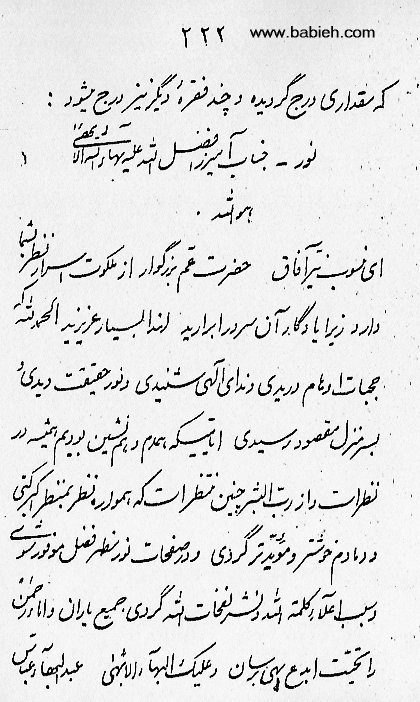 ۲۲۲ www.babieh.com
که مقداری درج گردیده و چند فقرهٔ دیگر نیز درج میشود :
نور - جناب آمیرزا فضل الله علیه بهاء الله الأبهی
هوالله
ای منسوب نیّر آفاق حضرت عمّ بزرگوار از ملکوت اسرار نظر بشما
دارد زیرا یادگار آن سرور ابرارید لهذا بسیار عزیزید الحمدلله که
حجبات اوهام دریدی و ندای الهی شنیدی و نور حقیقت دیدی و
بسرمنزل مقصود رسیدی ایامیکه همدم و همنشین بودیم همیشه در
نظر است و از ربّ البشر چنین منتظر است که همواره نظر بمنظر اکبر کنی
و دمادم خوشتر و مؤیّدتر گردی و در صفحات نور مظهر فضل موفور شوی
و سبب اعلاء کلمة الله و نشر نفحات الله گردی جمیع یاران و اماء رحمن
را تحیّت ابدع ابهی برسان و علیک البهاء الابهی عبدالبهاء عباس